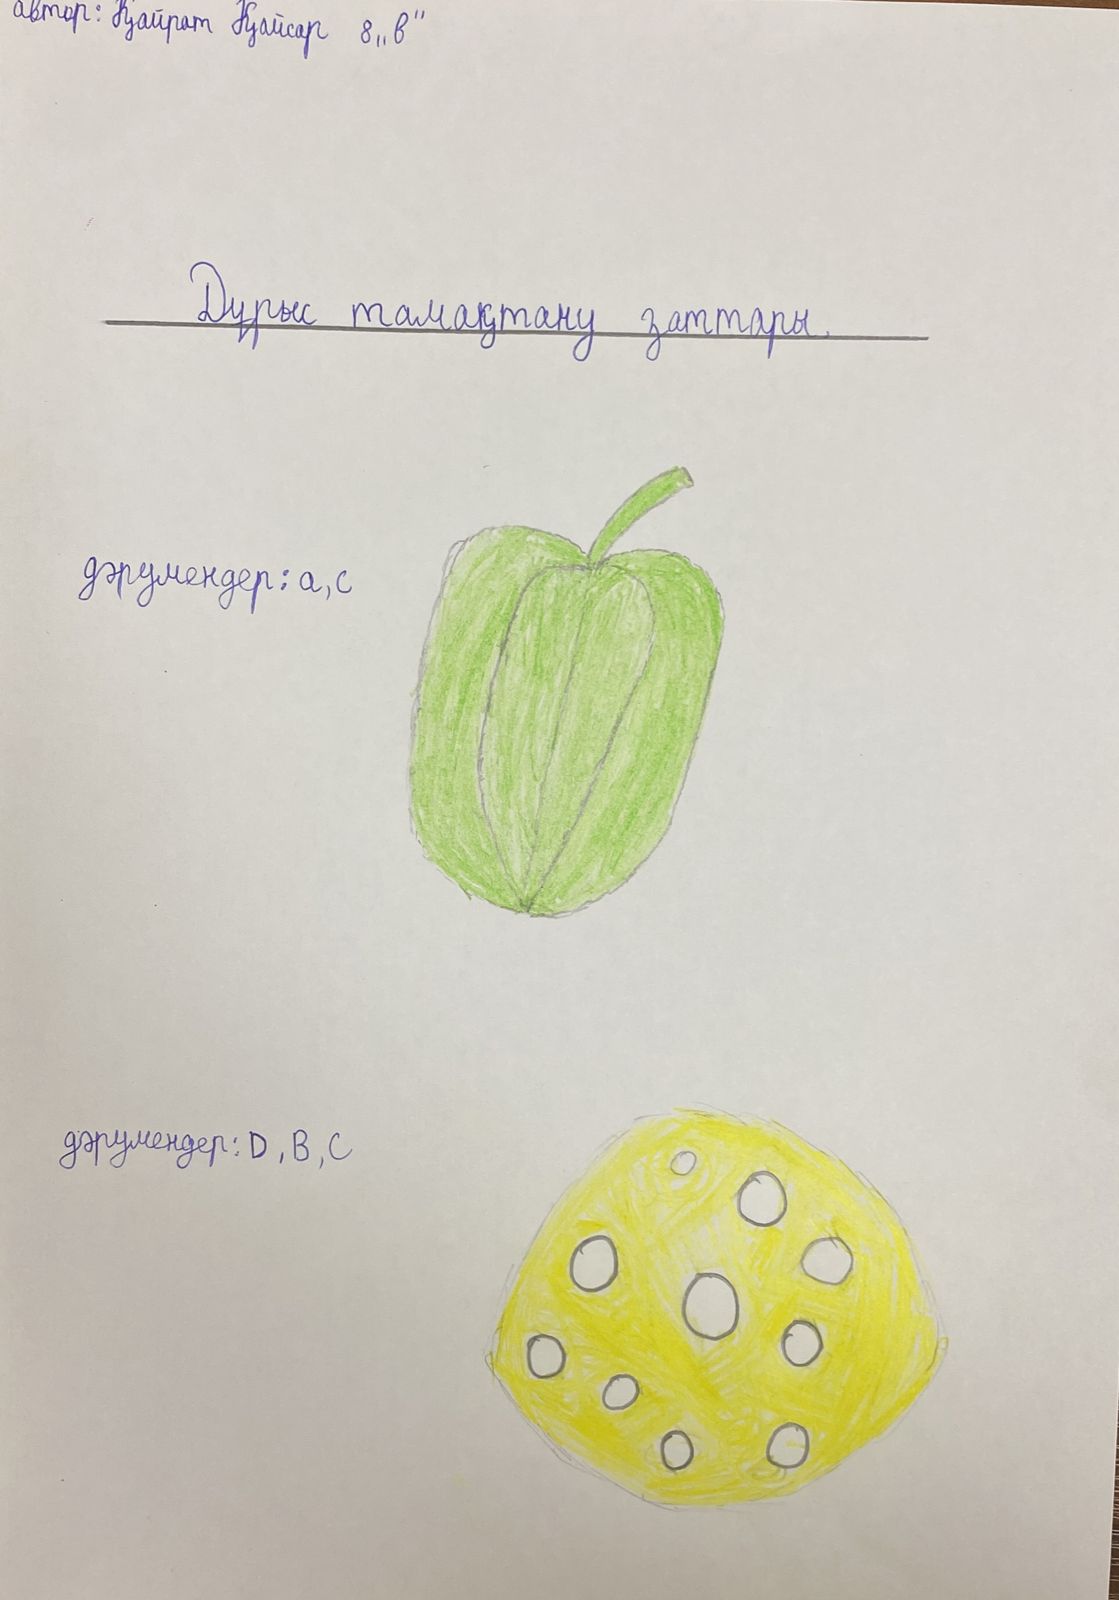 автор: Қайрат Қайсар 8„в"
Дұрыс тамақтану заттары.
дәрумендер: а, с
дәрумендер: D, B, C